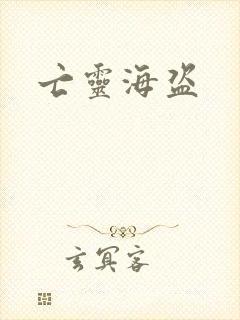 亡靈海盗
玄冥客